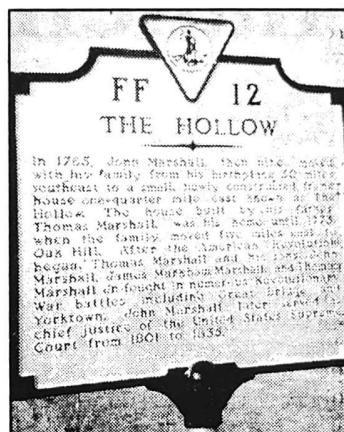 FF 12
THE HOLLOW
In 1765, John Marshall, then nine, moved
with his family from his birthplace 30 miles
southeast to a small, newly constructed frame
house one-quarter mile east known as The
Hollow. The house built by his father,
Thomas Marshall, was his home until 1773
when the family moved five miles east to
Oak Hill. After the American Revolution
began, Thomas Marshall and his sons John
Marshall, James Markham Marshall, and Thomas
Marshall fought in numerous Revolutionary
War battles including Great Bridge
Yorktown. John Marshall later served as
chief justice of the United States Supreme
Court from 1801 to 1835.